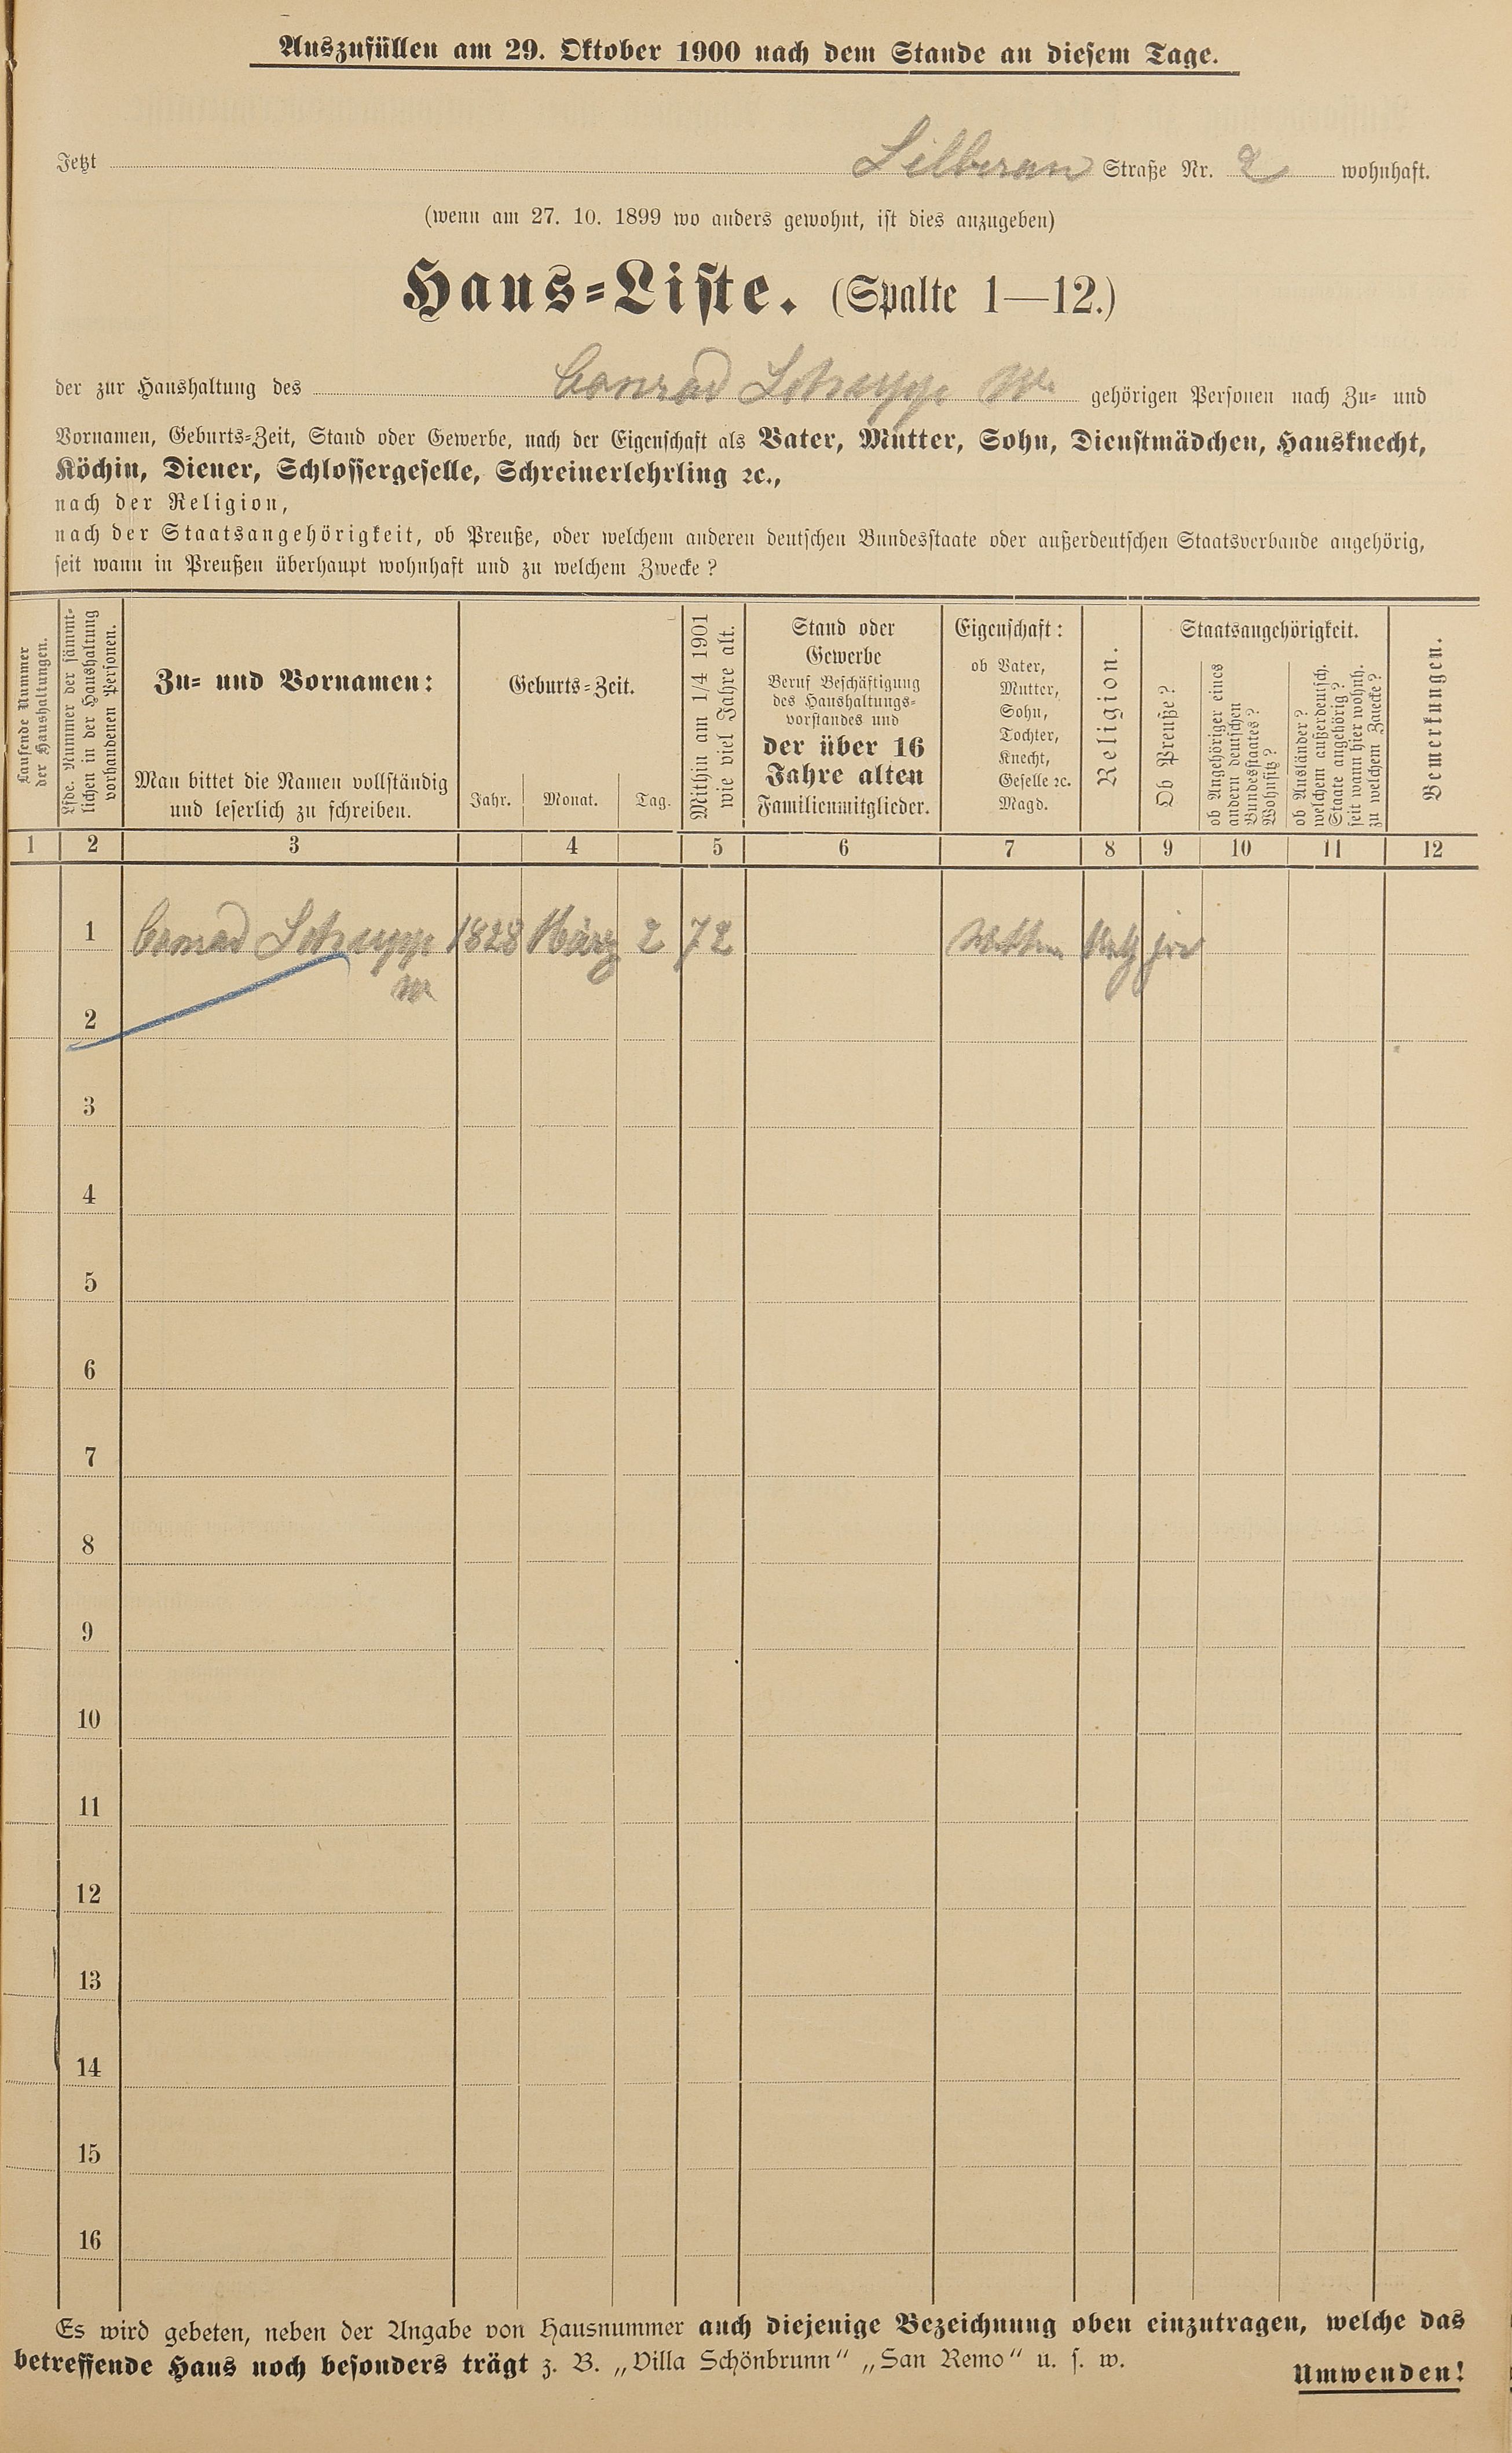 Auszufüllen am 29. Oktober 1900 nach dem Stande an diesem Tage.
Jetzt Straße Nr. 2 wohnhaft.
(wenn am 27. 10. 1899 wo anders gewohnt, ist dies anzugeben)
Haus-Liste. (Spalte 1—12.)
der zur Haushaltung des Conrad gehörigen Personen nach Zu- und
Vornamen, Geburts-Zeit, Stand oder Gewerbe, nach der Eigenschaft als Vater, Mutter, Sohn, Dienstmädchen, Hausknecht,
Köchin, Diener, Schlossergeselle, Schreinerlehrling ꝛc.,
nach der Religion,
nach der Staatsangehörigkeit, ob Preuße, oder welchem anderen deutschen Bundesstaate oder außerdeutschen Staatsverbande angehörig,
seit wann in Preußen überhaupt wohnhaft und zu welchem Zwecke?
Laufende Nummer
der Haushaltungen.
Lfde. Nummer der sämmt-
lichen in der Haushaltung
vorhandenen Personen.
Zu- und Vornamen:
Man bittet die Namen vollständig
und leserlich zu schreiben.
Geburts-Zeit.
Jahr. Monat. Tag.
Mithin am 1/4 1901
wie viel Jahre alt.
Stand oder
Gewerbe
Beruf Beschäftigung
des Haushaltungs-
vorstandes und
der über 16
Jahre alten
Familienmitglieder.
Eigenschaft:
ob Vater,
Mutter,
Sohn,
Tochter,
Knecht,
Geselle ꝛc.
Magd.
Religion.
Staatsangehörigkeit.
Ob Preuße?
ob Angehöriger eines
andern deutschen
Bundesstaates?
Wohnsitz?
ob Ausländer?
welchem außerdeutsch.
Staate angehörig?
seit wann hier wohnh.
zu welchem Zwecke?
Bemerkungen.
1 2 3 4 5 6 7 8 9 10 11 12
1 Conrad 1828 März 2 72
2
3
4
5
6
7
8
9
10
11
12
13
14
15
16
Es wird gebeten, neben der Angabe von Hausnummer auch diejenige Bezeichnung oben einzutragen, welche das
betreffende Haus noch besonders trägt z. B. „Villa Schönbrunn“ „San Remo“ u. s. w.
Umwenden!